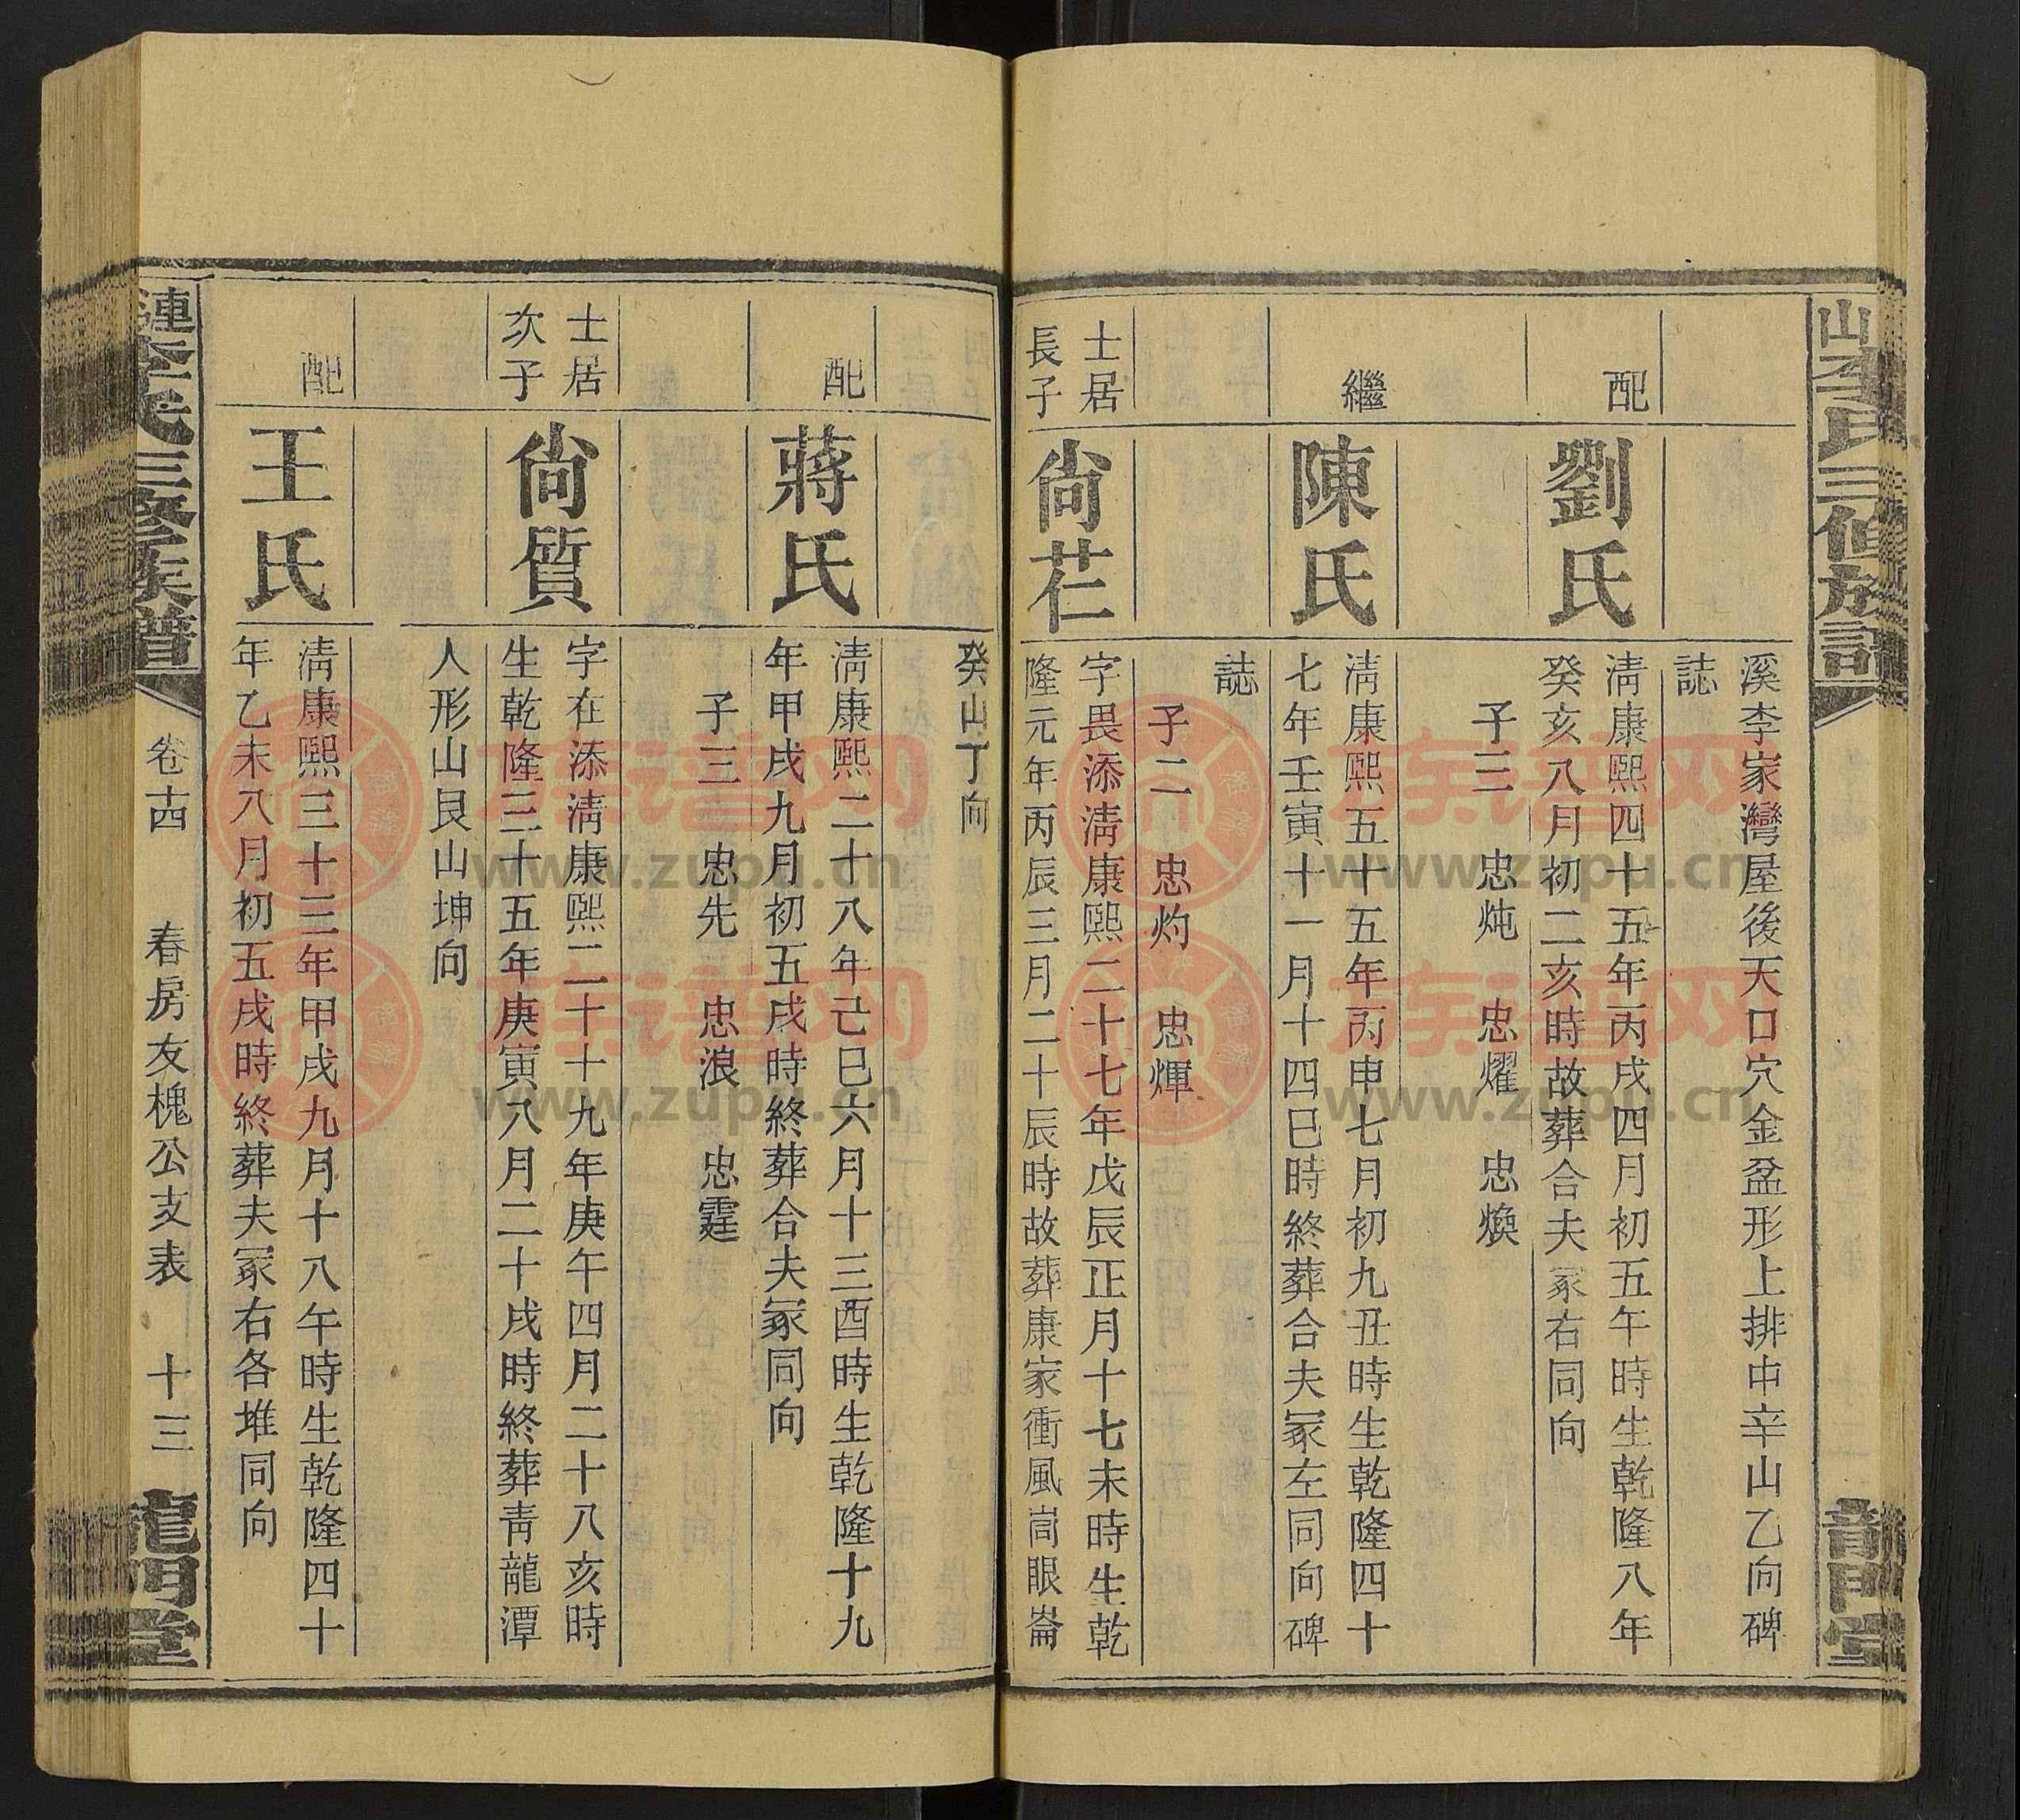 山李氏三修族譜
龍門堂
溪李家灣屋後天口穴金盆形上排中辛山乙向碑
誌
配
劉氏
淸康熙四十五年丙戌四月初五午時生乾隆八年
癸亥八月初二亥時故葬合夫冢右同向
子三 忠炖 忠燿 忠煥
繼
陳氏
淸康熙五十五年丙申七月初九丑時生乾隆四十
七年壬寅十一月十四巳時終葬合夫冢左同向碑
誌
子二 忠灼 忠煇
士居
長子
尙芢
字畏添淸康熙二十七年戊辰正月十七未時生乾
隆元年丙辰三月二十辰時故葬康家衝風崗眼崙
癸山丁向
配
蔣氏
淸康熙二十八年己巳六月十三酉時生乾隆十九
年甲戌九月初五戌時終葬合夫冢同向
子三 忠先 忠浪 忠霆
士居
次子
尙質
字在添淸康熙二十十九年庚午四月二十八亥時
生乾隆三十五年庚寅八月二十戌時終葬靑龍潭
人形山艮山坤向
配
王氏
淸康熙三十三年甲戌九月十八午時生乾隆四十
年乙未八月初五戌時終葬夫冢右各堆同向
漣李氏三修族譜
卷十四 春房友槐公支表 十三
龍門堂
族谱网
www.zupu.cn
族谱网
www.zupu.cn
族谱网
www.zupu.cn
族谱网
www.zupu.cn